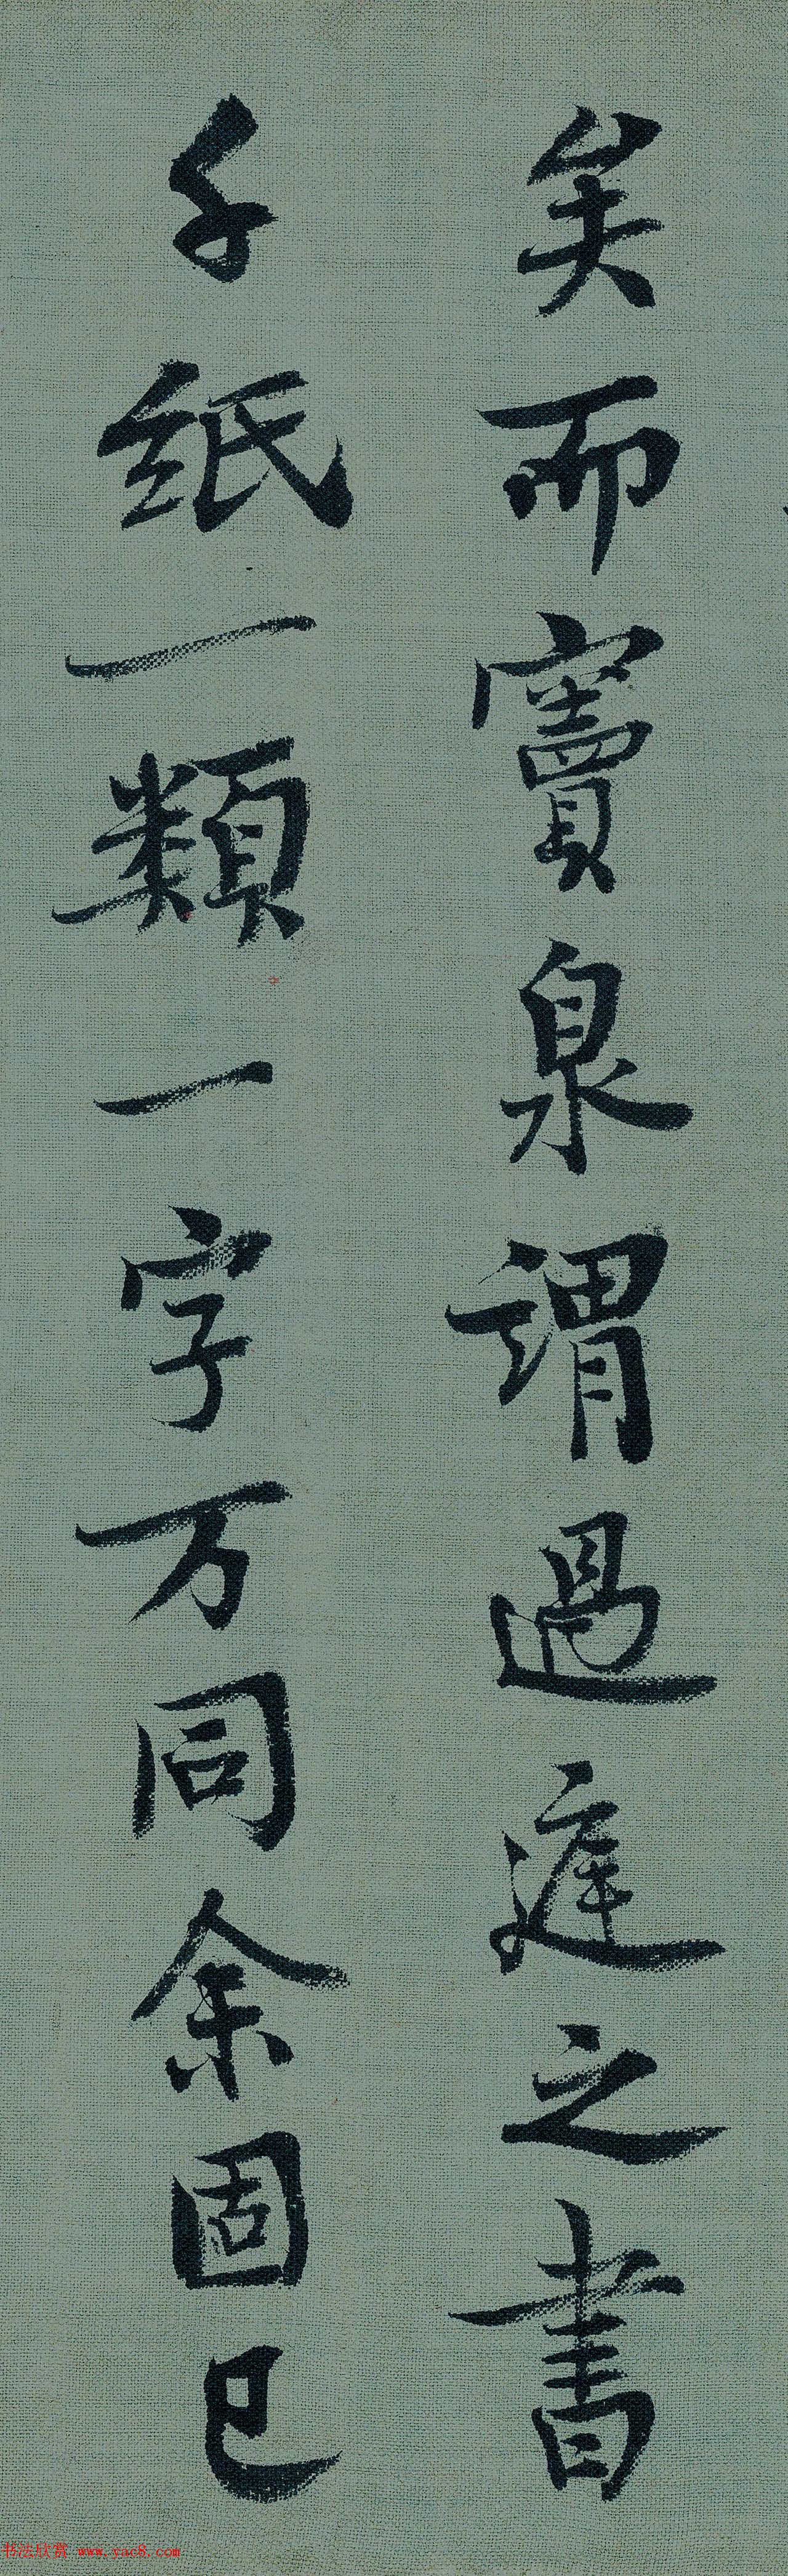 矣而竇泉謂過庭之書
千紙一類一字万同余固已
书法欣赏 www.yac8.com